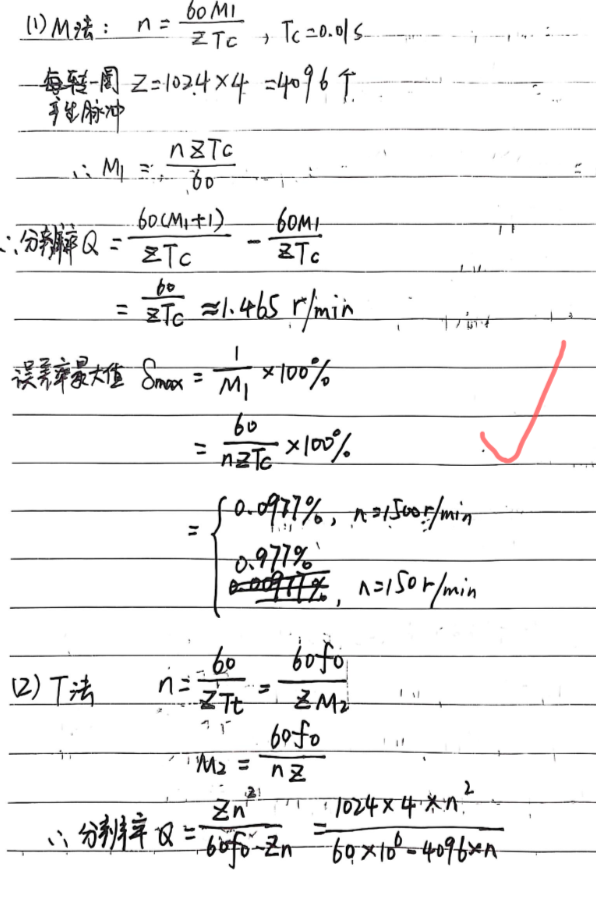 (1) M法: n = 60M₁/ZTc , Tc=0.01s
每转一圈 Z=1024×4 =4096个
产生脉冲
∴ M₁ = nZTc/60
∴分辨率Q = 60(M₁+1)/ZTc - 60M₁/ZTc
= 60/ZTc ≈1.465 r/min
误差率最大值 δmax = 1/M₁ ×100%
= 60/nZTc ×100%
= { 0.0977%, n=1500r/min
0.977%, n=150r/min
(2) T法 n= 60/ZTt = 60f₀/ZM₂
M₂ = 60f₀/nZ
∴ 分辨率 Q = Zn²/(60f₀-Zn) = 1024×4×n²/(60×10⁶-4096×n)